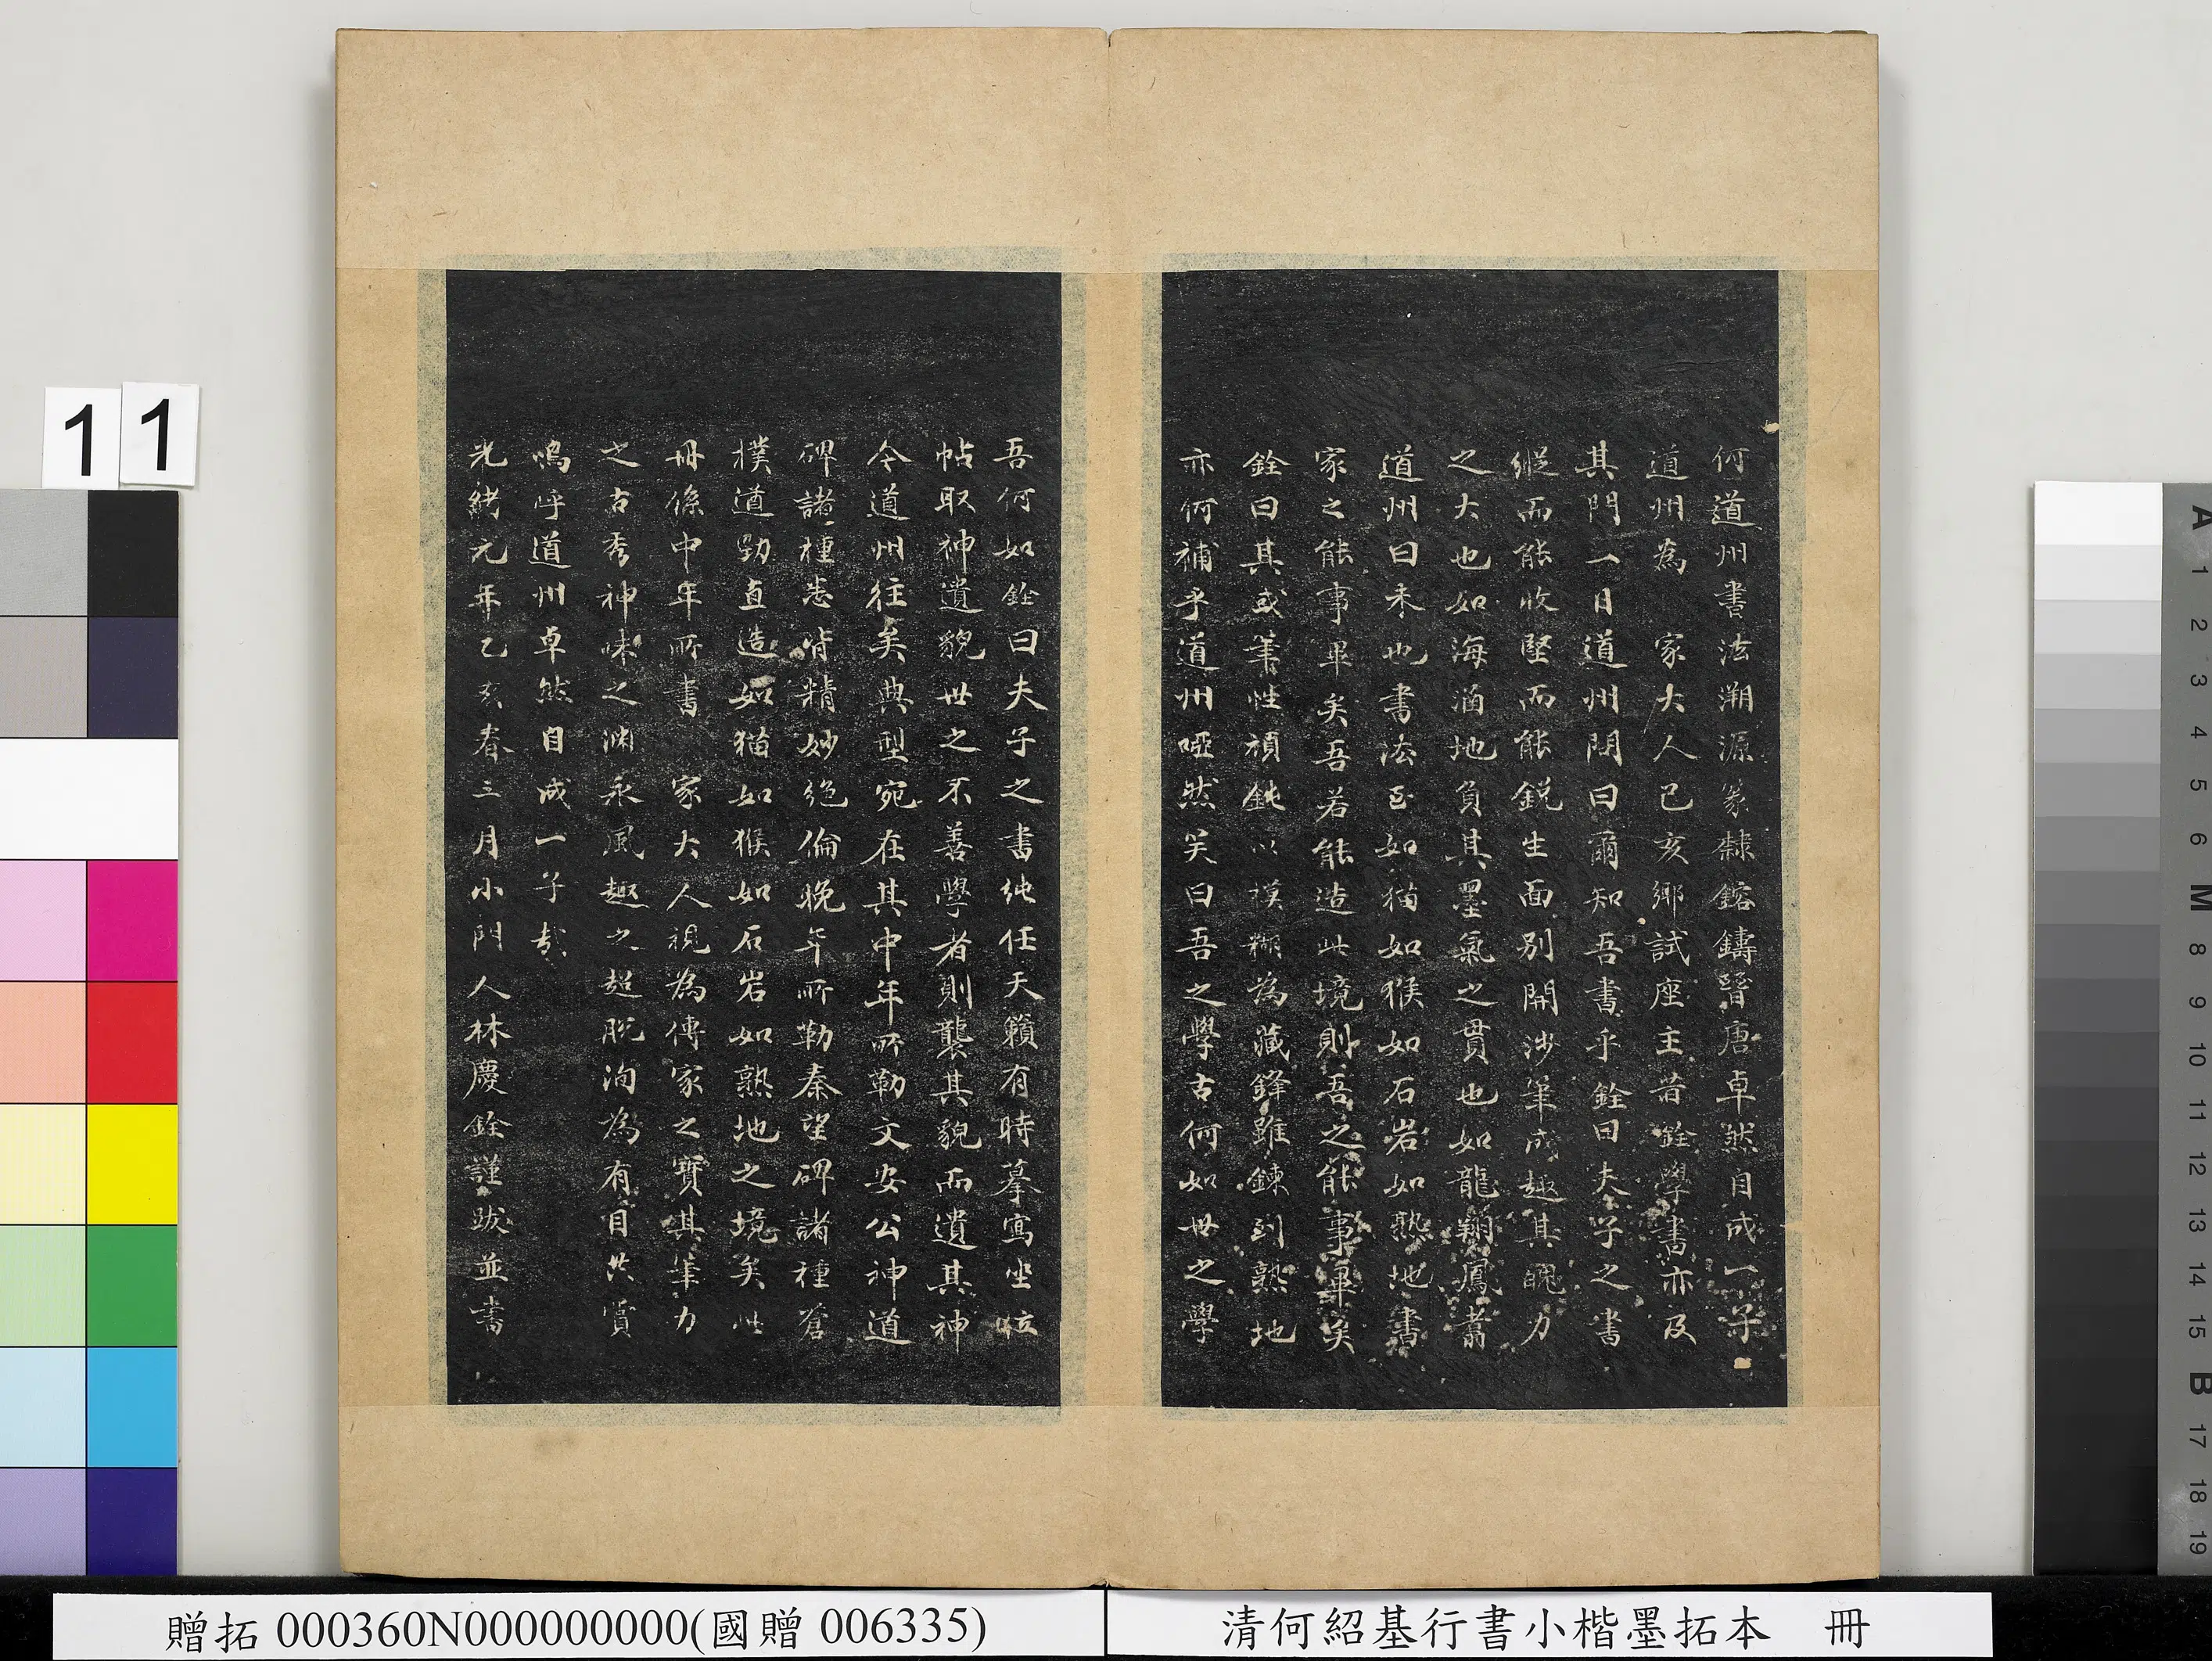 何道州書法溯源篆隸鎔鑄晉唐卓然自成一子
道州為 家大人己亥鄉試座主昔銓學書亦及
其門一日道州問曰爾知吾書乎銓曰夫子之書
縱而能收堅而能銳生面別開涉筆成趣其魄力
之大也如海涵地負其墨氣之貫也如龍翔鳳翥
道州曰未也書法至如猫如猴如石岩如熟地書
家之能事畢矣吾若能造此境則吾之能事畢矣
銓曰其或筆性頑鈍以模糊為藏鋒雖鍊到熟地
亦何補乎道州啞然笑曰吾之學古何如世之學
吾何如銓曰夫子之書純任天籟有時摹寫坐位
帖取神遺貌世之不善學者則襲其貌而遺其神
今道州往矣典型宛在其中年所勒文安公神道
碑諸種悉皆精妙絶倫晚年所勒秦望碑諸種蒼
樸遒勁直造如猫如猴如石岩如熟地之境矣此
冊係中年所書 家大人視為傳家之寶其筆力
之古秀神味之淵永風趣之超脫洵為有目共賞
嗚呼道州卓然自成一子哉
光緒元年乙亥春三月小門人林慶銓謹跋並書
11
A 1 2 3 4 5 6 M 8 9 10 11 12 13 14 15 B 17 18 19
清何紹基行書小楷墨拓本 冊
贈拓 000360N000000000(國贈 006335)